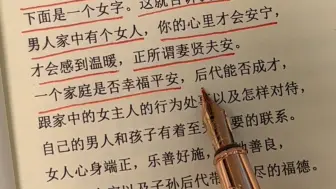 下面是一个女字。这就告诉
男人家中有个女人，你的心里才会安宁，
才会感到温暖，正所谓妻贤夫安。
一个家庭是否幸福平安，后代能否成才，
跟家中的女主人的行为处 以及怎样对待
自己的男人和孩子有着至 要的联系。
女人心身端正，乐善好施， 善良，
以及子孙后代带 尽的福德。